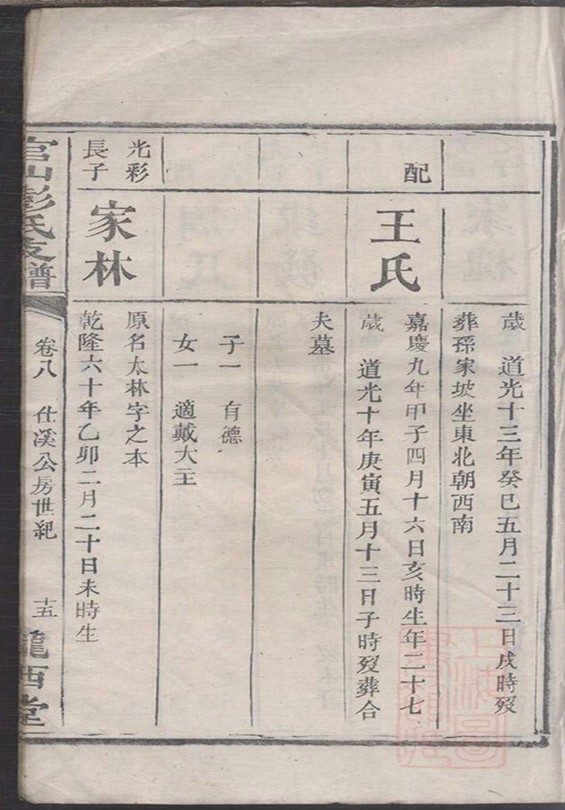 歲 道光十三年癸巳五月二十三日戌時歿
葬孫家坡坐東北朝西南
配 王氏
嘉慶九年甲子四月十六日亥時生年二十七
歲 道光十年庚寅五月十三日子時歿葬合
夫墓
子一 有德
女一 適戴大主
光彩長子 家林
原名太林字之本
乾隆六十年乙卯二月二十日未時生
官山彭氏支譜
卷八 仕溪公房世紀
十五
隴西堂